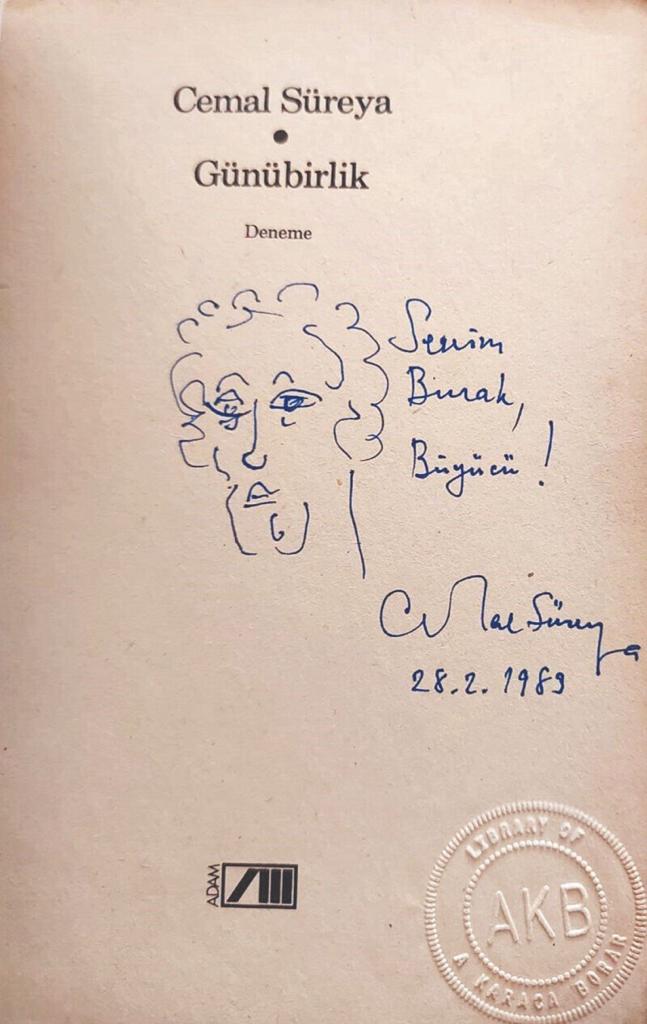 Cemal Süreya
Günübirlik
Deneme
Sevim
Burak,
Büyücü!
Cemal Süreya
28.2.1989
ADAM
LIBRARY OF
AKB
A KARACA BORAR